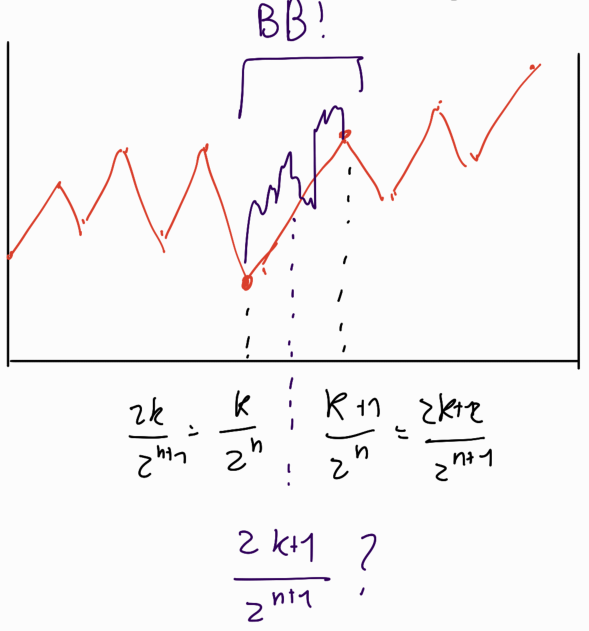 BB!
2k/2^{n+1} = k/2^n   k+1/2^n = 2k+2/2^{n+1}
2k+1/2^{n+1} ?